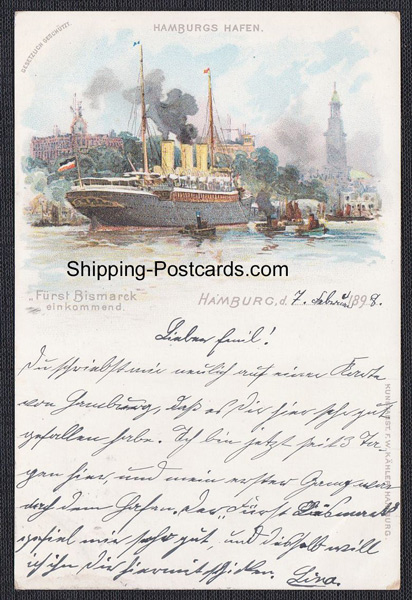 HAMBURGS HAFEN.
GESETZLICH GESCHÜTZT.
Shipping-Postcards.com
„Fürst Bismarck"
einkommend.
HAMBURG, d. 7. Februar 1898.
Lieber Emil!
Du schriebst mir neulich auf einer Karte
von Hamburg, daß es Dir hier sehr gut
gefallen habe. Ich bin jetzt seit 3 Ta-
gen hier, und mein erster Gang war
nach dem Hafen. Der „Fürst Bismarck"
gefiel mir sehr gut, und deshalb will
ich ihn Dir hiermit schicken. Lina.
KUNSTANST. F.W. KÄHLER HAMBURG.